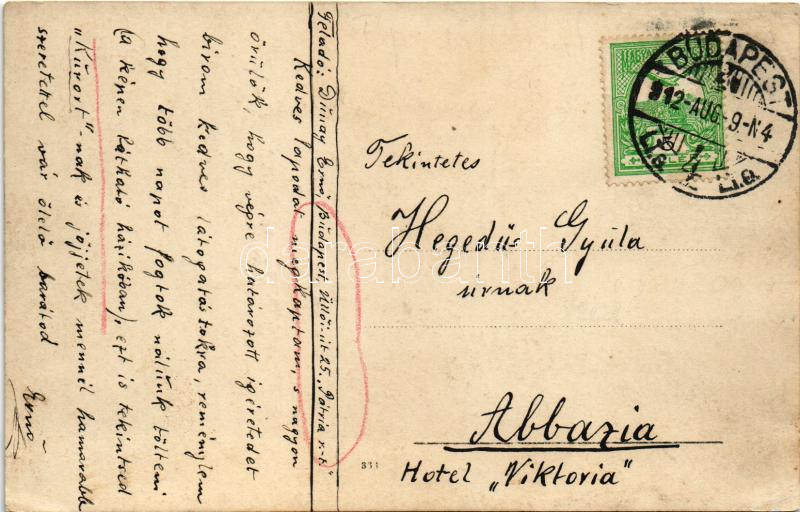 Feladó: Dunay Ernő, Budapest, Üllői-út 25. „Pátria r.-t."
Kedves lapodat megkaptam, s nagyon
örülök, hogy végre határozott igéretedet
birom kedves látogatástokra, reménylem
hogy több napot fogtok nálunk tölteni
(a képen látható házikóban), ezt is tekintsed
„Kurort"-nak és jöjjetek mennél hamarabb
szeretettel vár ölelő barátod
Ernő
BUDAPEST
912-AUG. 9-N4
MAGYAR
Tekintetes
Hegedüs Gyula
úrnak
Abbazia
Hotel „Viktoria"
darabanth